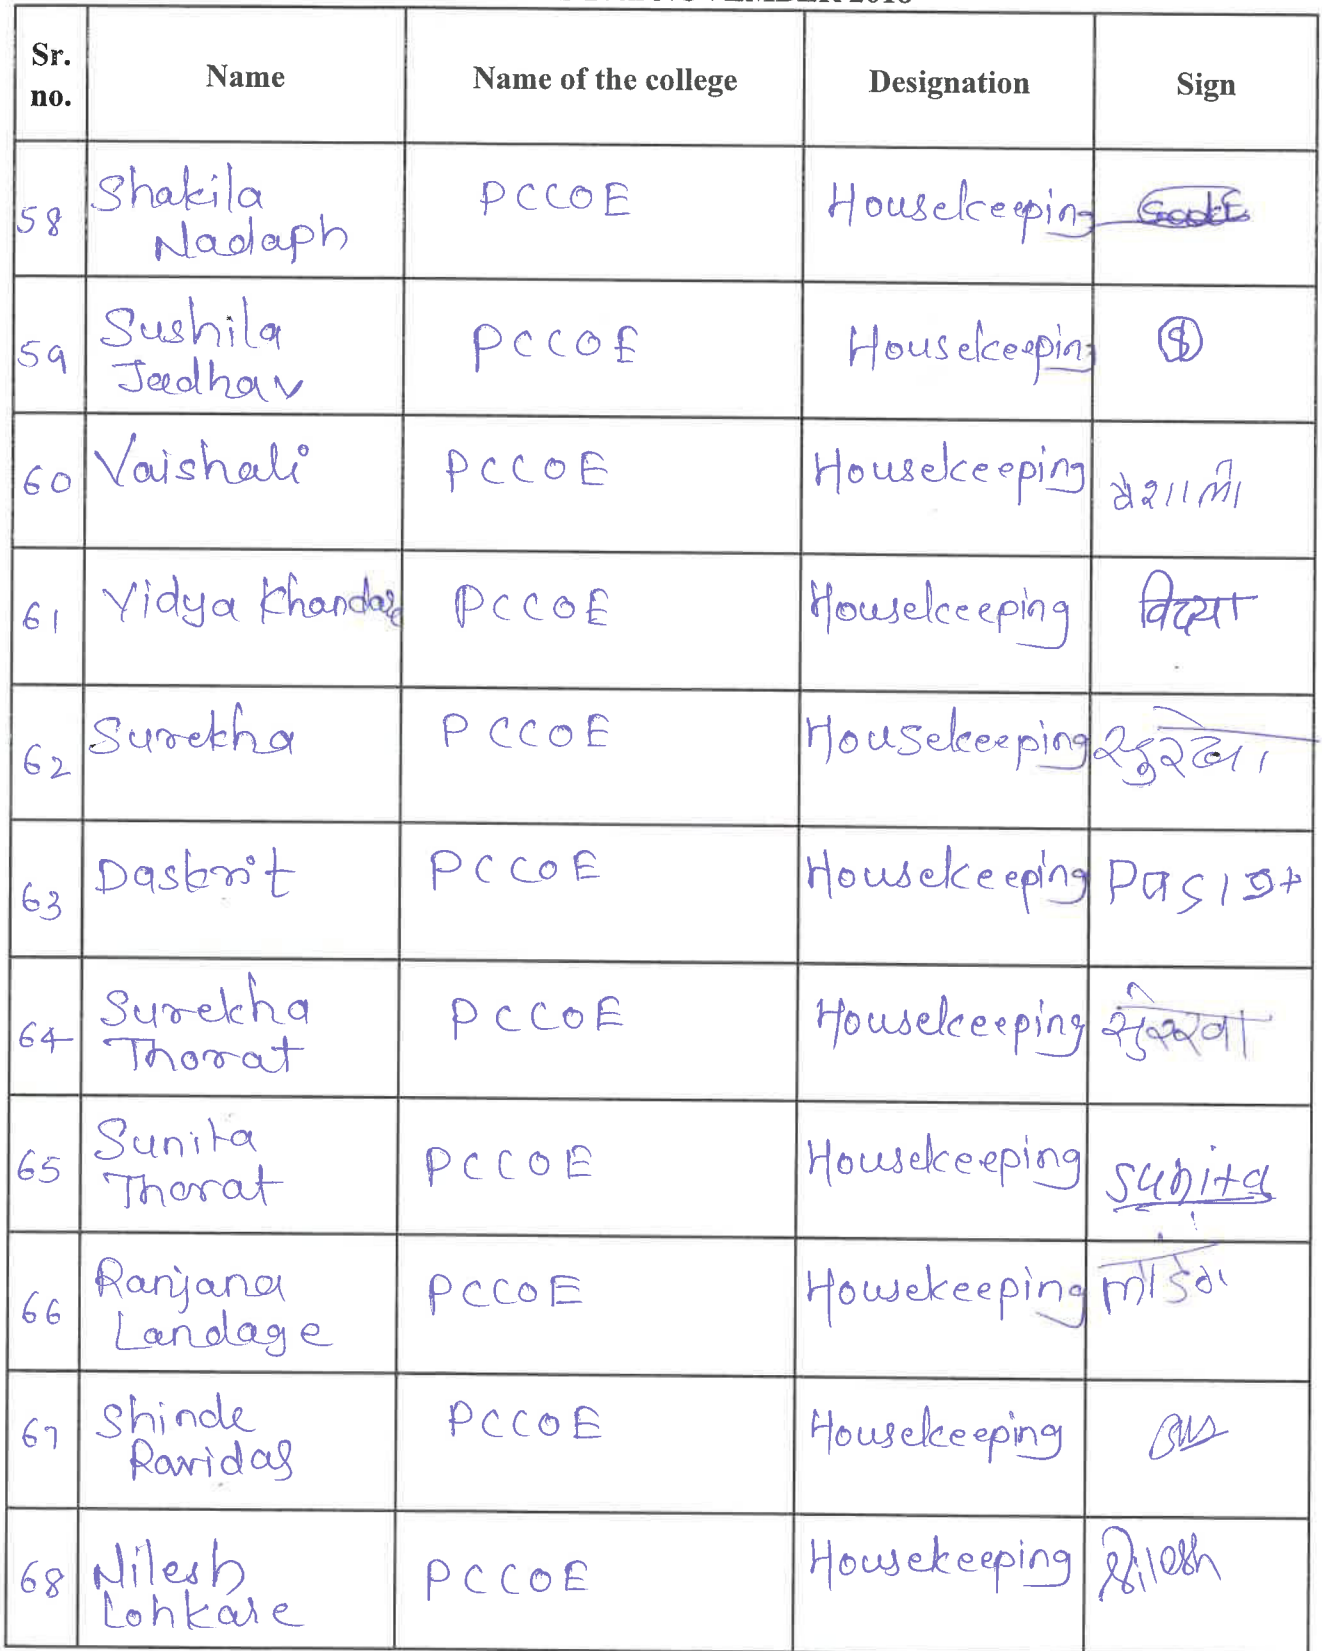 NOVEMBER 2018
Sr. no. Name Name of the college Designation Sign
58 Shakila Nadaph PCCOE Housekeeping
59 Sushila Jadhav PCCOE Housekeeping
60 Vaishali PCCOE Housekeeping वैशाली
61 Vidya Khandare PCCOE Housekeeping विद्या
62 Surekha PCCOE Housekeeping सुरेखा
63 PCCOE Housekeeping
64 Surekha Thorat PCCOE Housekeeping सुरेखा
65 Sunita Thorat PCCOE Housekeeping Sunita
66 Ranjana Landage PCCOE Housekeeping
67 Shinde Ravidas PCCOE Housekeeping
68 Nilesh Lohkare PCCOE Housekeeping Nilesh